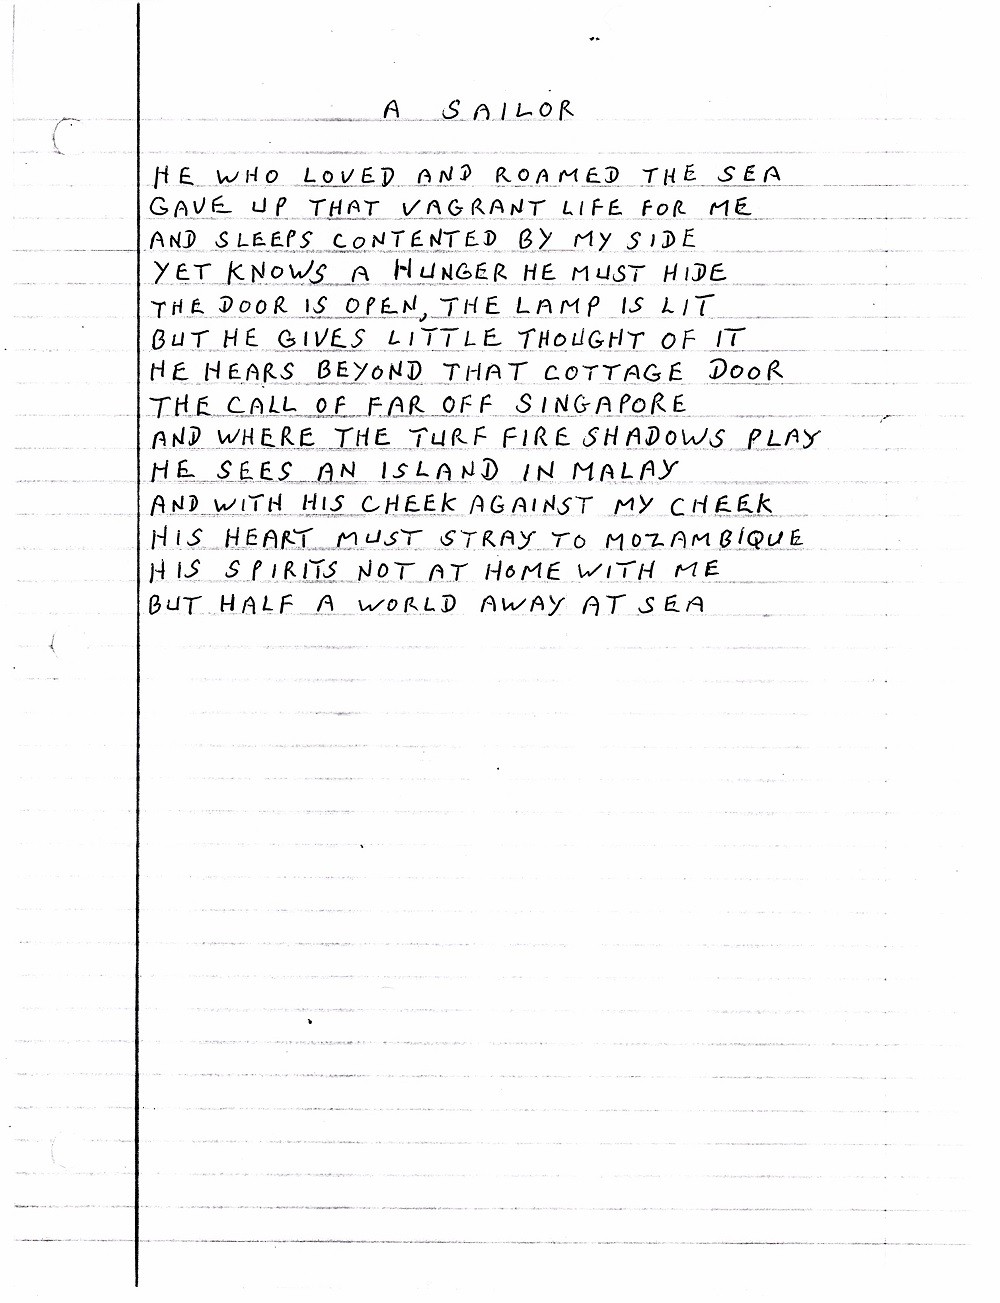 A SAILOR
HE WHO LOVED AND ROAMED THE SEA
GAVE UP THAT VAGRANT LIFE FOR ME
AND SLEEPS CONTENTED BY MY SIDE
YET KNOWS A HUNGER HE MUST HIDE
THE DOOR IS OPEN, THE LAMP IS LIT
BUT HE GIVES LITTLE THOUGHT OF IT
HE HEARS BEYOND THAT COTTAGE DOOR
THE CALL OF FAR OFF SINGAPORE
AND WHERE THE TURF FIRE SHADOWS PLAY
HE SEES AN ISLAND IN MALAY
AND WITH HIS CHEEK AGAINST MY CHEEK
HIS HEART MUST STRAY TO MOZAMBIQUE
HIS SPIRITS NOT AT HOME WITH ME
BUT HALF A WORLD AWAY AT SEA